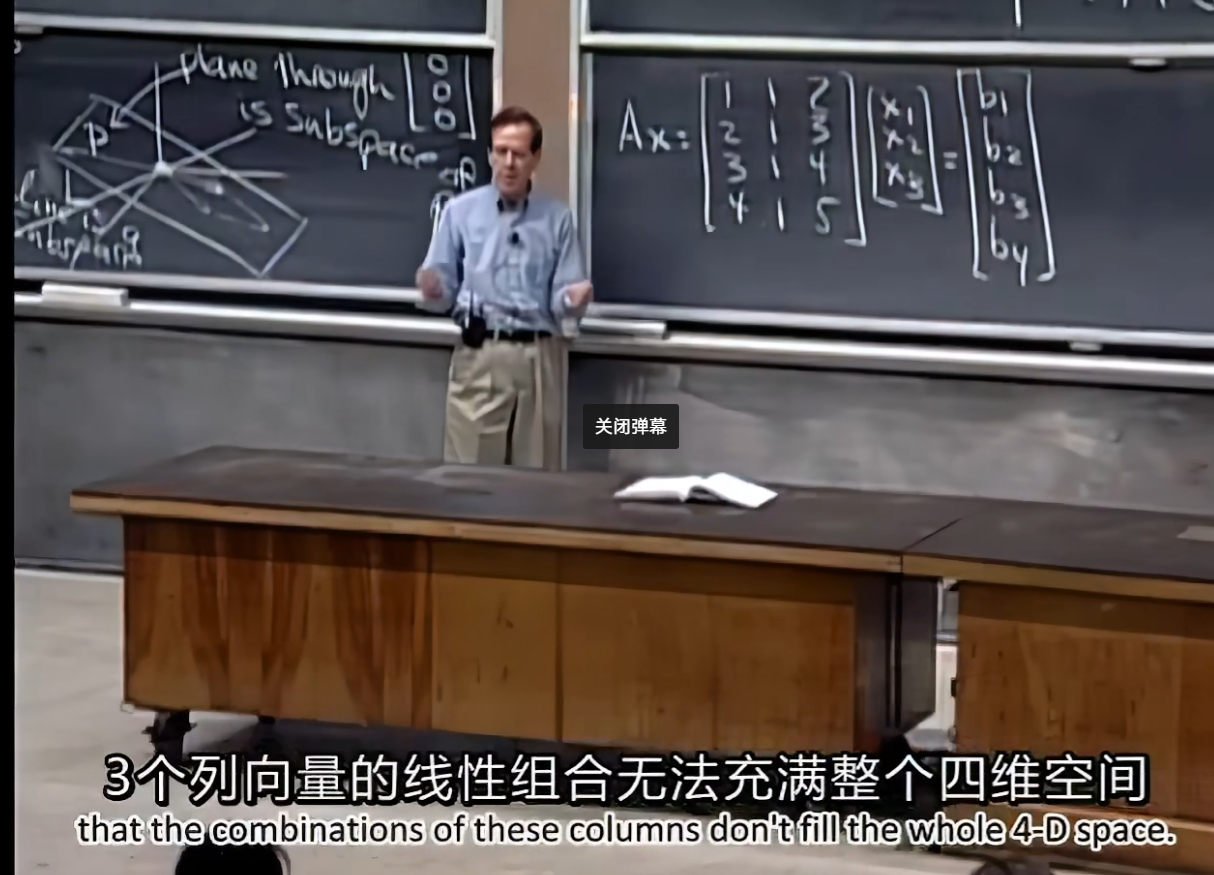 plane through [0 0 0]
is subspace of
P
line is
Ax = [1 1 2; 2 1 3; 3 1 4; 4 1 5] [x1 x2 x3] = [b1 b2 b3 b4]
关闭弹幕
3个列向量的线性组合无法充满整个四维空间
that the combinations of these columns don't fill the whole 4-D space.